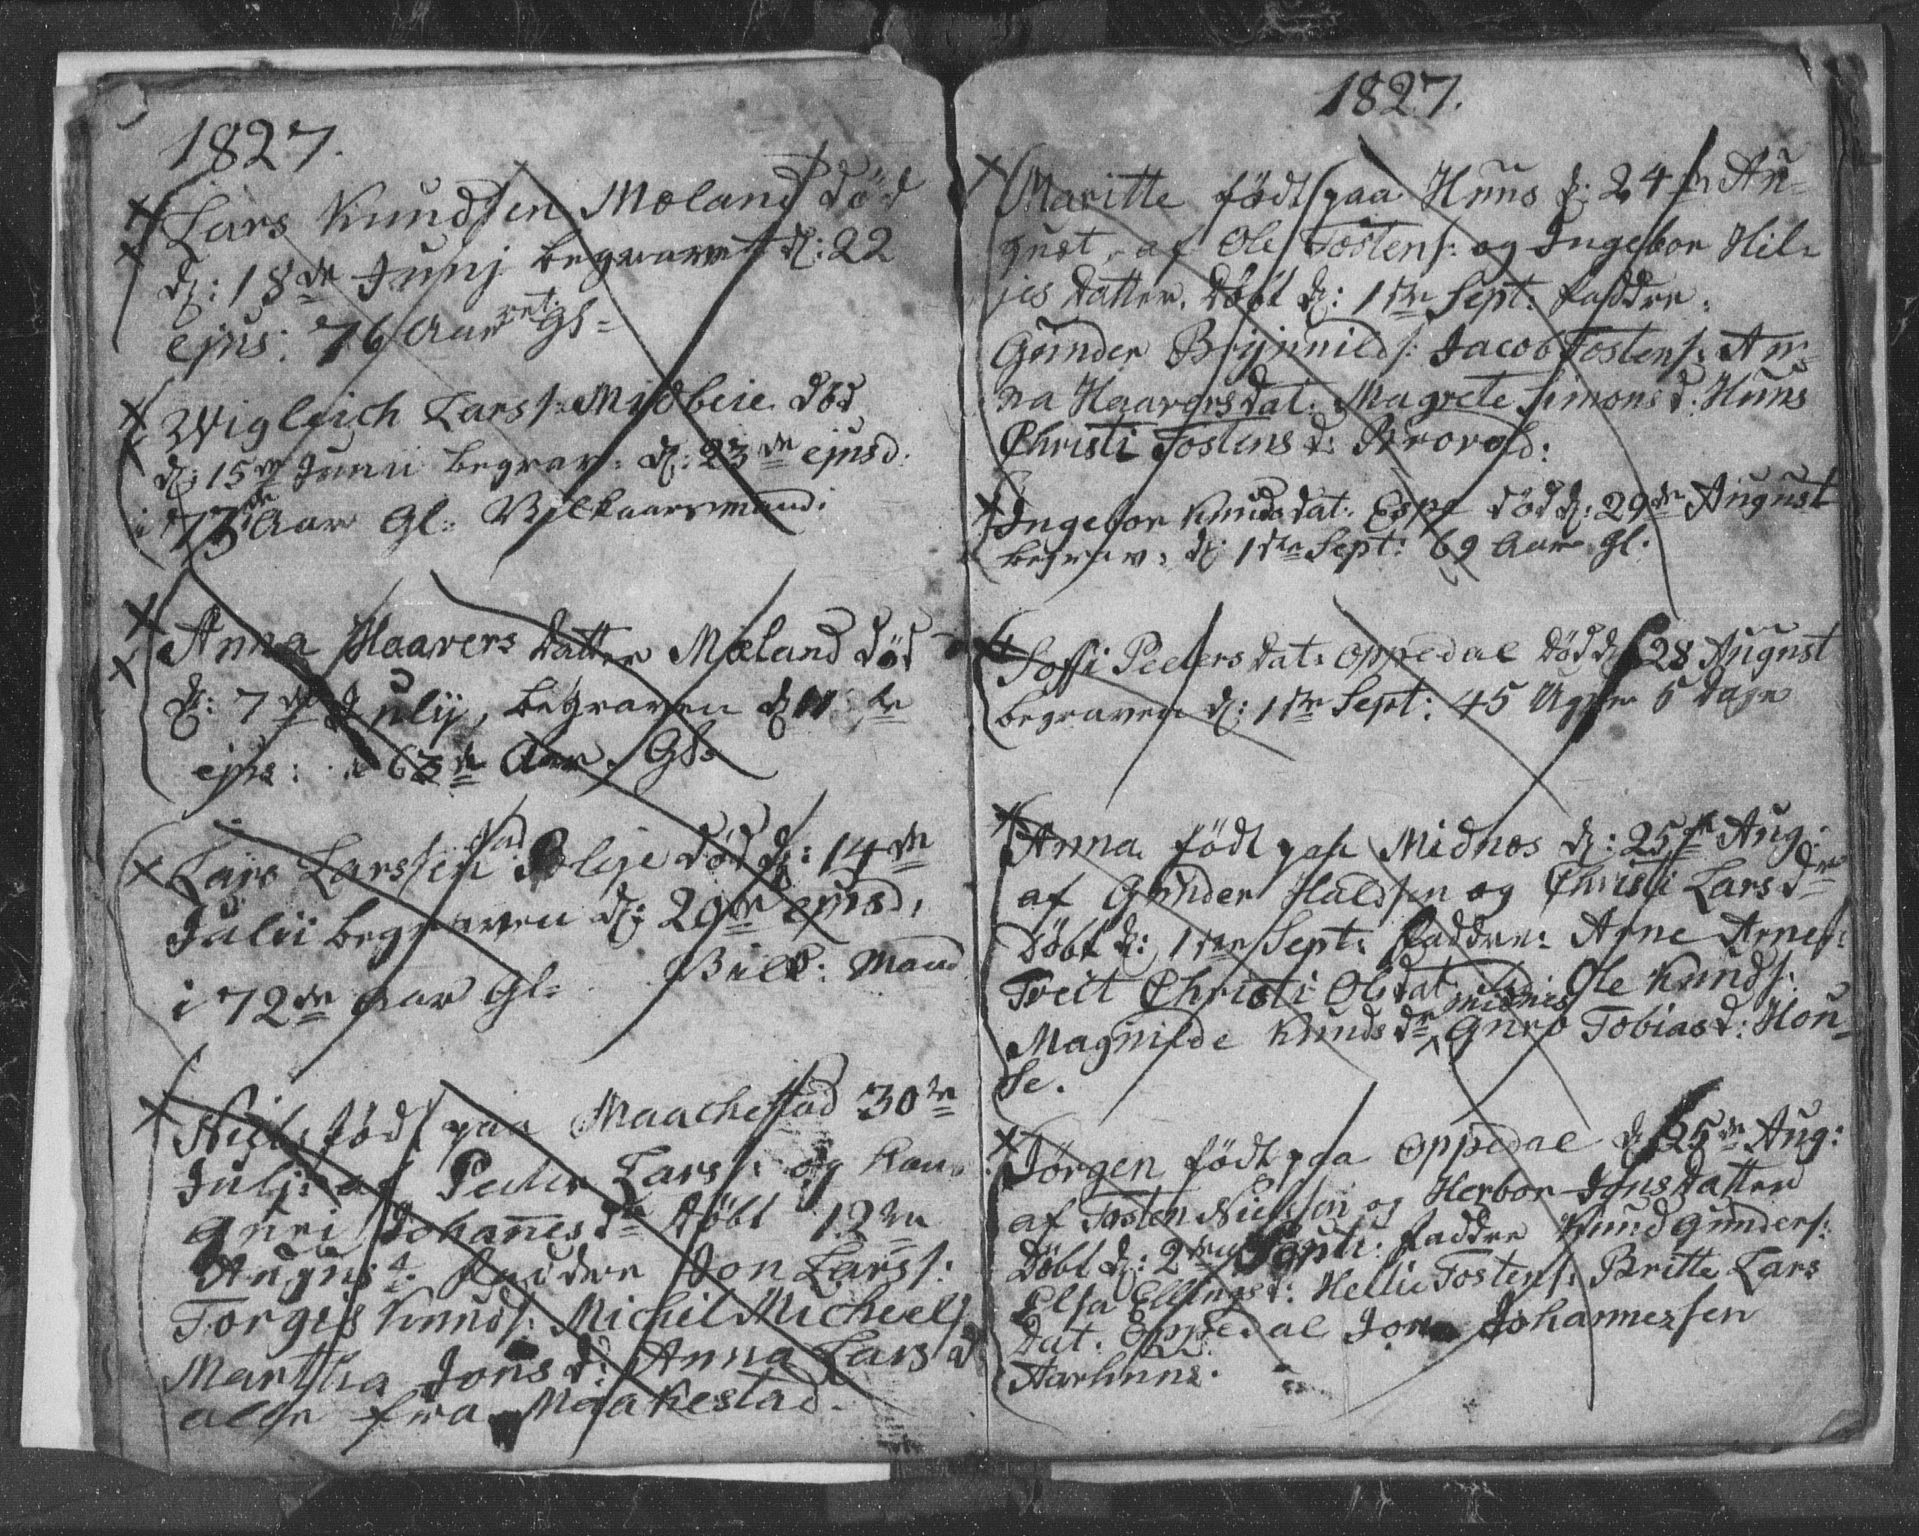 1827.
Lars Knudsen Mæland død
d: 18de Junj begravet d: 22
ejus: 76 Aar Gl=
Wigleich Lars: Midbeie død
d: 15de Junii begrav: d: 23de ejusd.
i 73de Aar Gl: Vilkaarsmand:
Anna Haavers Datter Mæland død
d: 7de Julij, begraven d 11te
ejus: i 63de Aar Gl:
Lars Larssen død d: 14de
Julii begraven d: 20de ejusd,
i 72de Aar Gl= Vilk: Mand
Niels født paa Maachestad 30te
Julj: af Peder Lars: og Kone
Guri Johannesdr Døbt 12te
August. Faddre Jon Lars:
Torgils Knuds: Michil Micheels
Martha Jons d: Anna Lars d
alle fra Maakestad.
1827.
Maritte født paa Huus d: 24de Au-
gust, af Ole Tostens: og Ingebor Hil-
jes Datter. Døbt d: 1ste Sept: Faddre:
Gunder Brynnilds: Jacob Tostens: An-
na Haaversdat: Magrete Simons d: Huus
Christi Tostens d:
Ingebor Knudsdat: Espe død d: 29de August
begrav: d: 1ste Sept: 69 Aar gl.
Soffi Peders dat: Oppedal Død d: 28 August
begraven d: 1ste Sept: 45 Uger 5 Dage
Anna født paa Midnes d: 25de Aug:
af Gunder Halds:en og Christi Lars dr
Døbt d: 1ste Sept: Faddre: Arne Arnes:
Tveit Christi Olsdat Ole Knuds:
Magnilde Knuds dr midnes Guro Tobias d: Hou-
se.
Jørgen født paa Oppedal d 25de Aug:
af Tosten Nielssen og Herbor Jons Datter
Døbt d: 2den Sept: Faddre Knud Gunders:
Elsa Ellings d: Hellie Tostens: Britte Lars
dat. Oppedal Jon Johannessen
Aarhuus.